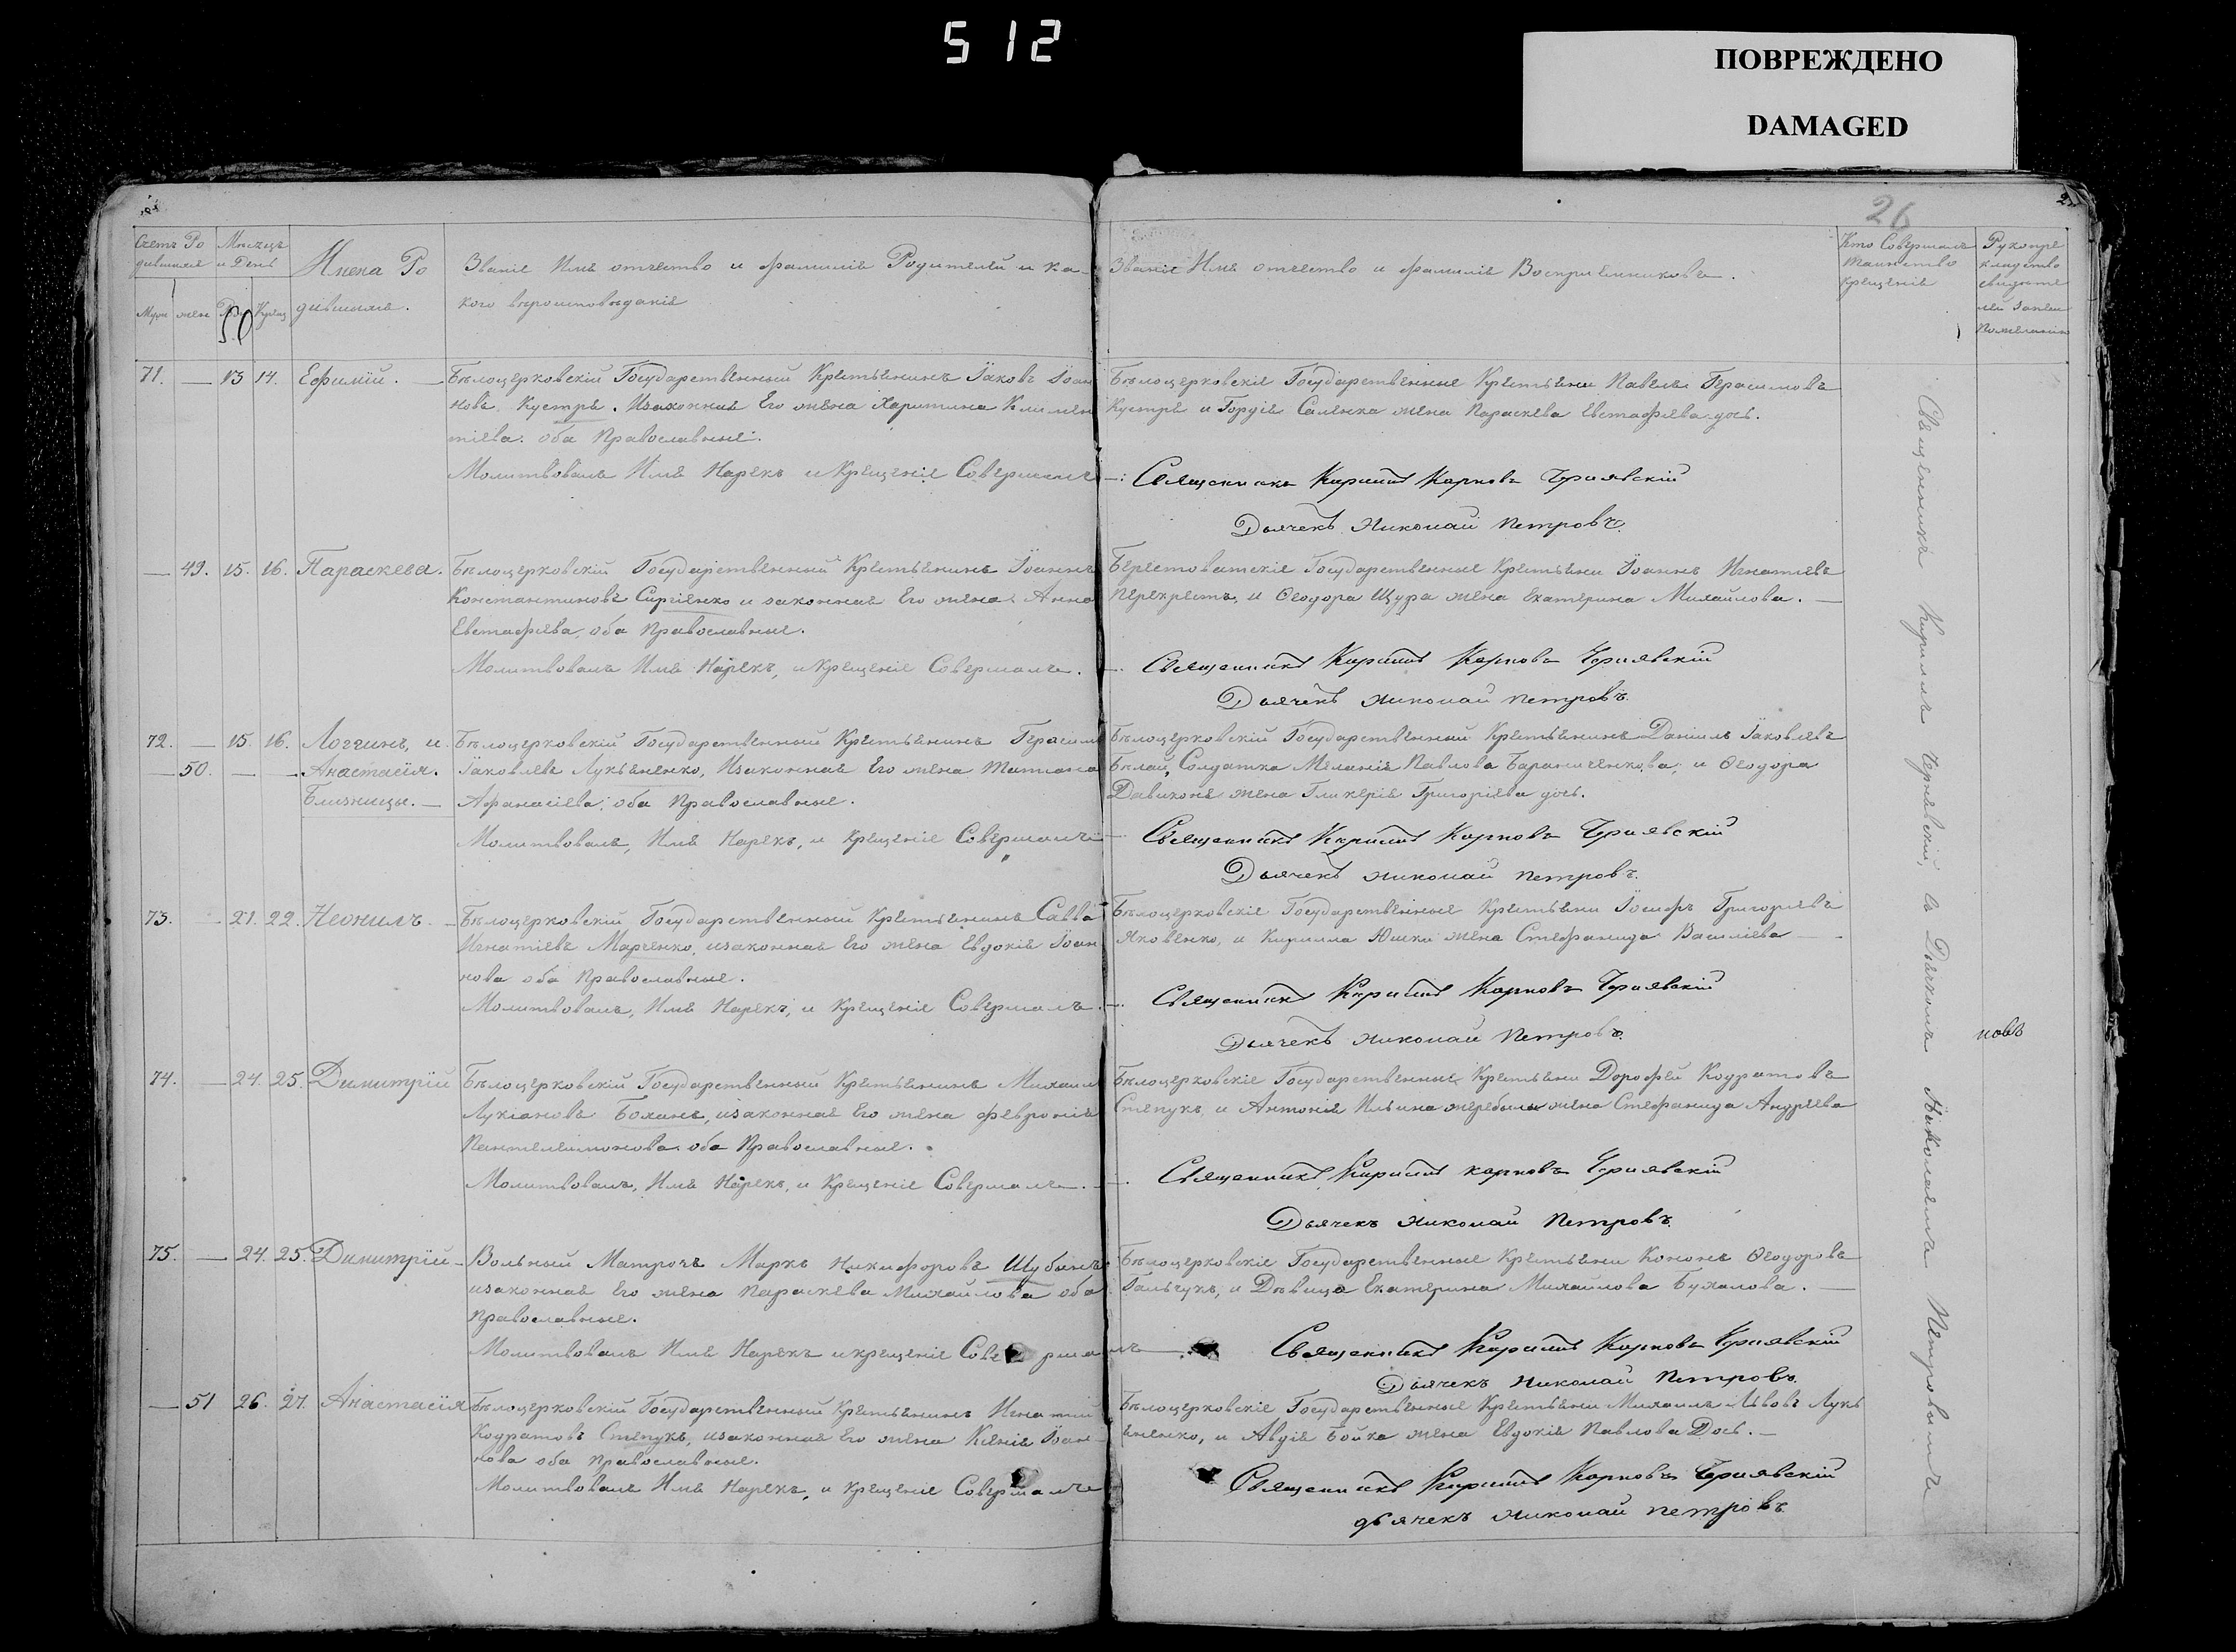 512
ПОВРЕЖДЕНО
DAMAGED
26
Счетъ Ро
дившихся
Мѣсяцъ
и День
Имена Ро
дившихся.
Званіе Имя отчество и фамилія Родителей и ка-
кого вѣроисповѣданія
Муж жен Крещ
Званіе Имя отчество и фамилія Воспріемниковъ.
Кто Совершалъ
таинство
крещенія
Рукопри
кладство
свидѣте
лей записи
По желанію
71. — 13 14. Ефимій. —
Бѣлоцерковскій Государственный Крестьянинъ Іаковъ Іоан
новъ Кустря. Изаконная Его жена Харитина Климен
тіева. оба Православные.
Молитвовалъ Имя Нарекъ и Крещеніе Совершалъ
Бѣлоцерковскіе Государственные Крестьяни Павелъ Герасимовъ
Кустря и Гордія Саленка жена Параскева Евстафіева дочь.
Священникъ Кирилъ Карповъ Чернявскій
Дьячекъ Николай Петровъ.
— 49. 15. 16. Параскева.
Бѣлоцерковскій Государственный Крестьянинъ Іоаннъ
Константиновъ Сиргіенко и законная Его жена Анна
Евстафіева, оба Православные.
Молитвовалъ Имя Нарекъ, и Крещеніе Совершалъ.
Берестоватскіе Государственные Крестьяни Іоаннъ Игнатіевъ
Перехрестъ, и Ѳеодора Щура жена Екатерина Михайлова. —
Священникъ Кирилъ Карповъ Чернявскій
Дьячекъ Николай Петровъ.
72. — 15. 16. Логгинъ, и
— 50. — — Анастасія.
Близницы. —
Бѣлоцерковскій Государственный Крестьянинъ Герасимъ
Іаковлевъ Лукьяненко, Изаконная Его жена Татіана
Афанасіева; оба Православные.
Молитвовалъ, Имя Нарекъ, и Крещеніе Совершалъ
Бѣлоцерковскій Государственный Крестьянинъ Даніилъ Іаковлевъ
Бѣлай, Солдатка Меланія Павлова Бараниченкова; и Ѳеодора
жена Гликерія Григоріева дочь.
Священникъ Кирилъ Карповъ Чернявскій
Дьячекъ Николай Петровъ.
73. — 21. 22. Неонилъ. —
Бѣлоцерковскій Государственный Крестьянинъ Савва
Игнатіевъ Марченко, изаконная Его жена Евдокія Іоан
нова оба Православные.
Молитвовалъ, Имя Нарекъ, и Крещеніе Совершалъ.
Бѣлоцерковскіе Государственные Крестьяни Іосифъ Григоріевъ
Яковенко, и Кирилла Юшки жена Стефанида Василіева —
Священникъ Кирилъ Карповъ Чернявскій
Дьячекъ Николай Петровъ.
74. — 24. 25. Димитрій
Бѣлоцерковскій Государственный Крестьянинъ Михаил
Лукіановъ Боханъ, изаконная Его жена Февронія
Пантелеимонова оба Православные.
Молитвовалъ, Имя Нарекъ, и Крещеніе Совершалъ.
Бѣлоцерковскіе Государственные Крестьяни Дорофей Кодратовъ
Степукъ, и Антонія Ильина жена Стефанида Андреева
Священникъ Кирилъ Карповъ Чернявскій
Дьячекъ Николай Петровъ.
75. — 24. 25. Димитрій —
Вольный Матрозъ Маркъ Никифоровъ Шубинъ
изаконная Его жена Параскева Михайлова оба
Православные.
Молитвовалъ Имя Нарекъ и крещеніе Совершалъ —
Бѣлоцерковскіе Государственные Крестьяни Кононъ Ѳеодоровъ
Гальчукъ, и Дѣвица Екатерина Михайлова Бухалова. —
Священникъ Кирилъ Карповъ Чернявскій
Дьячекъ Николай Петровъ.
— 51 26. 27. Анастасія
Бѣлоцерковскій Государственный Крестьянинъ Игнатій
Кодратовъ Степукъ, изаконная Его жена Ксенія Іоан
нова оба Православные.
Молитвовалъ Имя Нарекъ, и Крещеніе Совершалъ
Бѣлоцерковскіе Государственные Крестьяни Михаилъ Львовъ Лукь
яненко, и Авдія Бойка жена Евдокія Павлова Дочь. —
Священникъ Кирилъ Карповъ Чернявскій
дьячекъ Николай Петровъ
Священникъ Кириллъ Чернявскій, съ Дьячкомъ Николаемъ Петровымъ
новъ